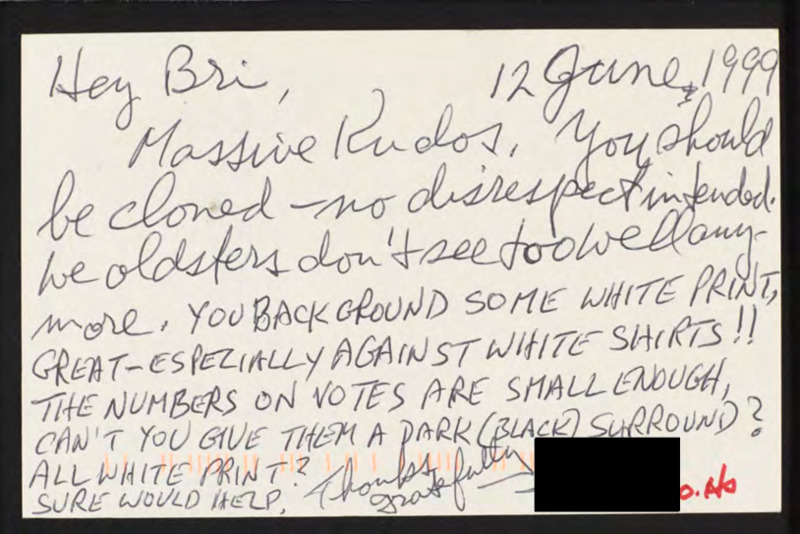 Hey Bri, 12 June, 1999
Massive Kudos. You should
be cloned - no disrespect intended.
We oldsters don't see too well any-
more. YOU BACKGROUND SOME WHITE PRINT,
GREAT-ESPECIALLY AGAINST WHITE SHIRTS!!
THE NUMBERS ON VOTES ARE SMALL ENOUGH,
CAN'T YOU GIVE THEM A DARK (BLACK) SURROUND?
ALL WHITE PRINT?
SURE WOULD HELP. Thanks,
gratefully